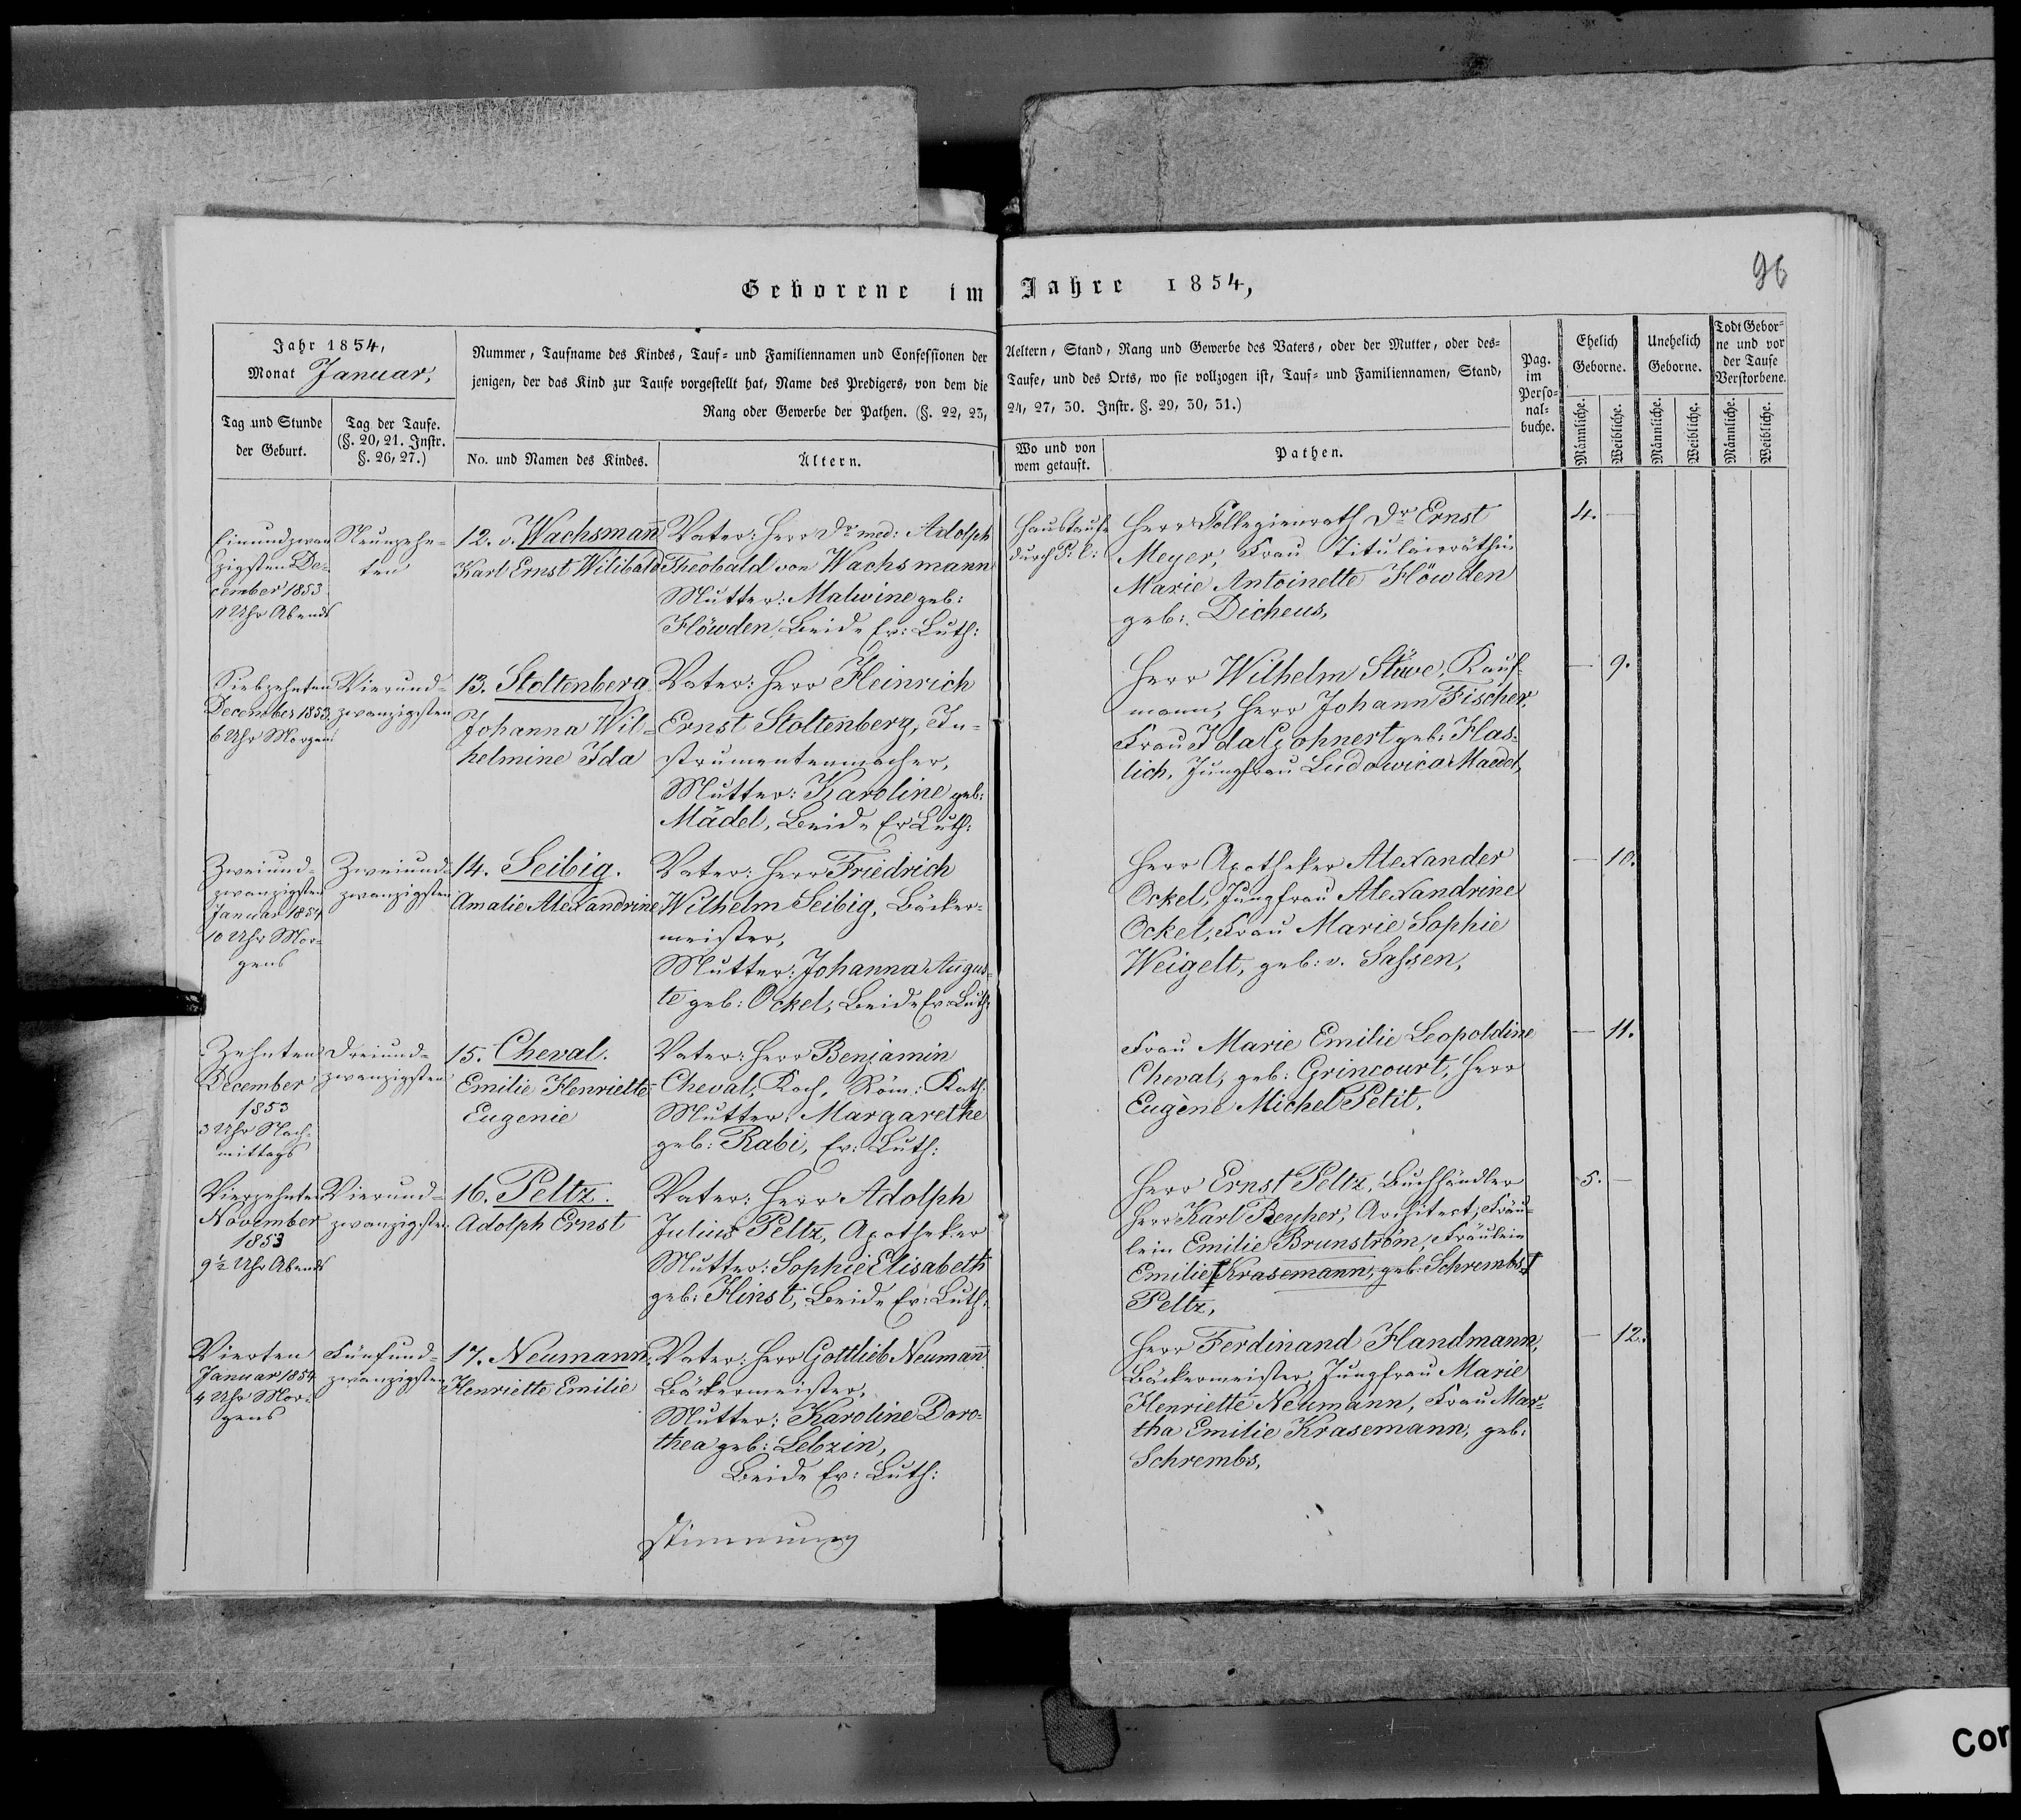 96
Geborene im Jahre 1854,
Jahr 1854,
Monat Januar,
Tag und Stunde
der Geburt.
Tag der Taufe.
(§. 20, 21. Instr.
§. 26, 27.)
Nummer, Taufname des Kindes, Tauf- und Familiennamen und Confessionen der
jenigen, der das Kind zur Taufe vorgestellt hat, Name des Predigers, von dem die
Rang oder Gewerbe der Pathen. (§. 22, 23,
No. und Namen des Kindes.
Ältern.
Aeltern, Stand, Rang und Gewerbe des Vaters, oder der Mutter, oder des-
Taufe, und des Orts, wo sie vollzogen ist, Tauf- und Familiennamen, Stand,
24, 27, 30. Instr. §. 29, 30, 31.)
Wo und von
wem getauft.
Pathen.
Pag.
im
Perso-
nal-
buche.
Ehelich
Geborne.
Unehelich
Geborne.
Todt Gebor-
ne und vor
der Taufe
Verstorbene.
Männliche.
Weibliche.
Männliche.
Weibliche.
Männliche.
Weibliche.
Einundzwan
zigsten De-
cember 1853
11 Uhr Abends
Neunzehn-
ten
12. v. Wachsmann
Karl Ernst Wilibald
Vater: Herr Dr. med: Adolph
Theobald von Wachsmann
Mutter: Malwine geb:
Flöwden, Beide Ev: Luth:
Haustaufe
durch P: C:
Herr Kollegienrath Dr Ernst
Meyer, Frau Titulairräthin
Marie Antoinette Flöwden
geb: Dicheus,
4. —
Siebzehnten
December 1853
6 Uhr Morgens
Vierund-
zwanzigsten
13. Stoltenberg
Johanna Wil-
helmine Ida
Vater: Herr Heinrich
Ernst Stoltenberg, In-
strumentenmacher,
Mutter: Karoline geb:
Mädel, Beide Ev Luth:
Herr Wilhelm Stüwe, Kauf-
mann, Herr Johann Fischer,
Frau Ida Gohnert geb: Has-
lich, Jungfrau Ludowica Maedel,
— 9.
Zweiund-
zwanzigsten
Januar 1854
10 Uhr Mor-
gens
Zweiund-
zwanzigsten
14. Seibig.
Amalie Alexandrine
Vater: Herr Friedrich
Wilhelm Seibig, Bäcker-
meister,
Mutter: Johanna Augus-
te geb: Ockel, Beide Ev: Luth:
Herr Apotheker Alexander
Ockel, Jungfrau Alexandrine
Ockel, Frau Marie Sophie
Weigelt, geb: v. Sassen,
— 10.
Zehnten
December
1853
3 Uhr Nach-
mittags
Dreiund-
zwanzigsten
15. Cheval.
Emilie Henriette
Eugenie
Vater: Herr Benjamin
Cheval, Koch, Röm: Kath:
Mutter: Margarethe
geb: Rabi, Ev: Luth:
Frau Marie Emilie Leopoldine
Cheval, geb: Grincourt, Herr
Eugène Michel Petit,
— 11.
Vierzehnten
November
1853
9½ Uhr Abends
Vierund-
zwanzigsten
16. Peltz.
Adolph Ernst
Vater: Herr Adolph
Julius Peltz, Apotheker
Mutter: Sophie Elisabeth
geb: Hinst, Beide Ev: Luth:
Herr Ernst Peltz, Buchhändler
Herr Karl Beyher, Architect, Fräu-
lein Emilie Brunström, Fräulein
Emilie Krasemann, geb: Schrembs
Peltz,
5. —
Vierten
Januar 1854
4 Uhr Mor-
gens
Fünfund-
zwanzigsten
17. Neumann.
Henriette Emilie
Vater: Herr Gottlieb Neumann
Bäckermeister,
Mutter: Karoline Doro-
thea geb: Lebzin,
Beide Ev: Luth:
Herr Ferdinand Handmann,
Bäckermeister, Jungfrau Marie
Henriette Neumann, Frau Mar-
tha Emilie Krasemann, geb:
Schrembs,
— 12.
Cor